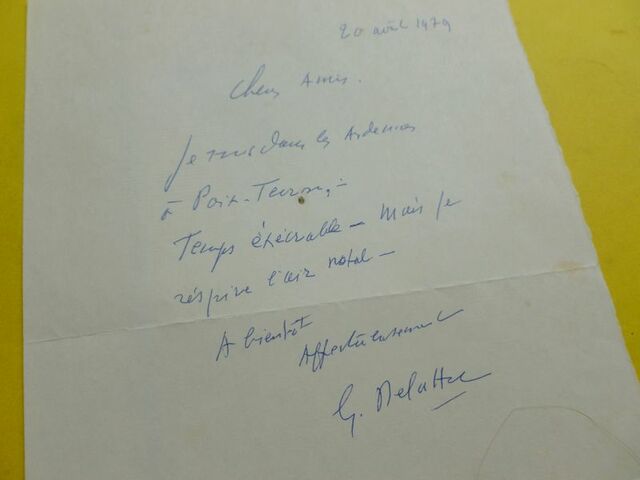 20 août 1979
Chers Amis.
Je suis dans les Ardennes
à Poix-Terron, -
Temps éxécrable - Mais je
réspire l'air natal -
A bientôt
Affectueusement
G. Delattre